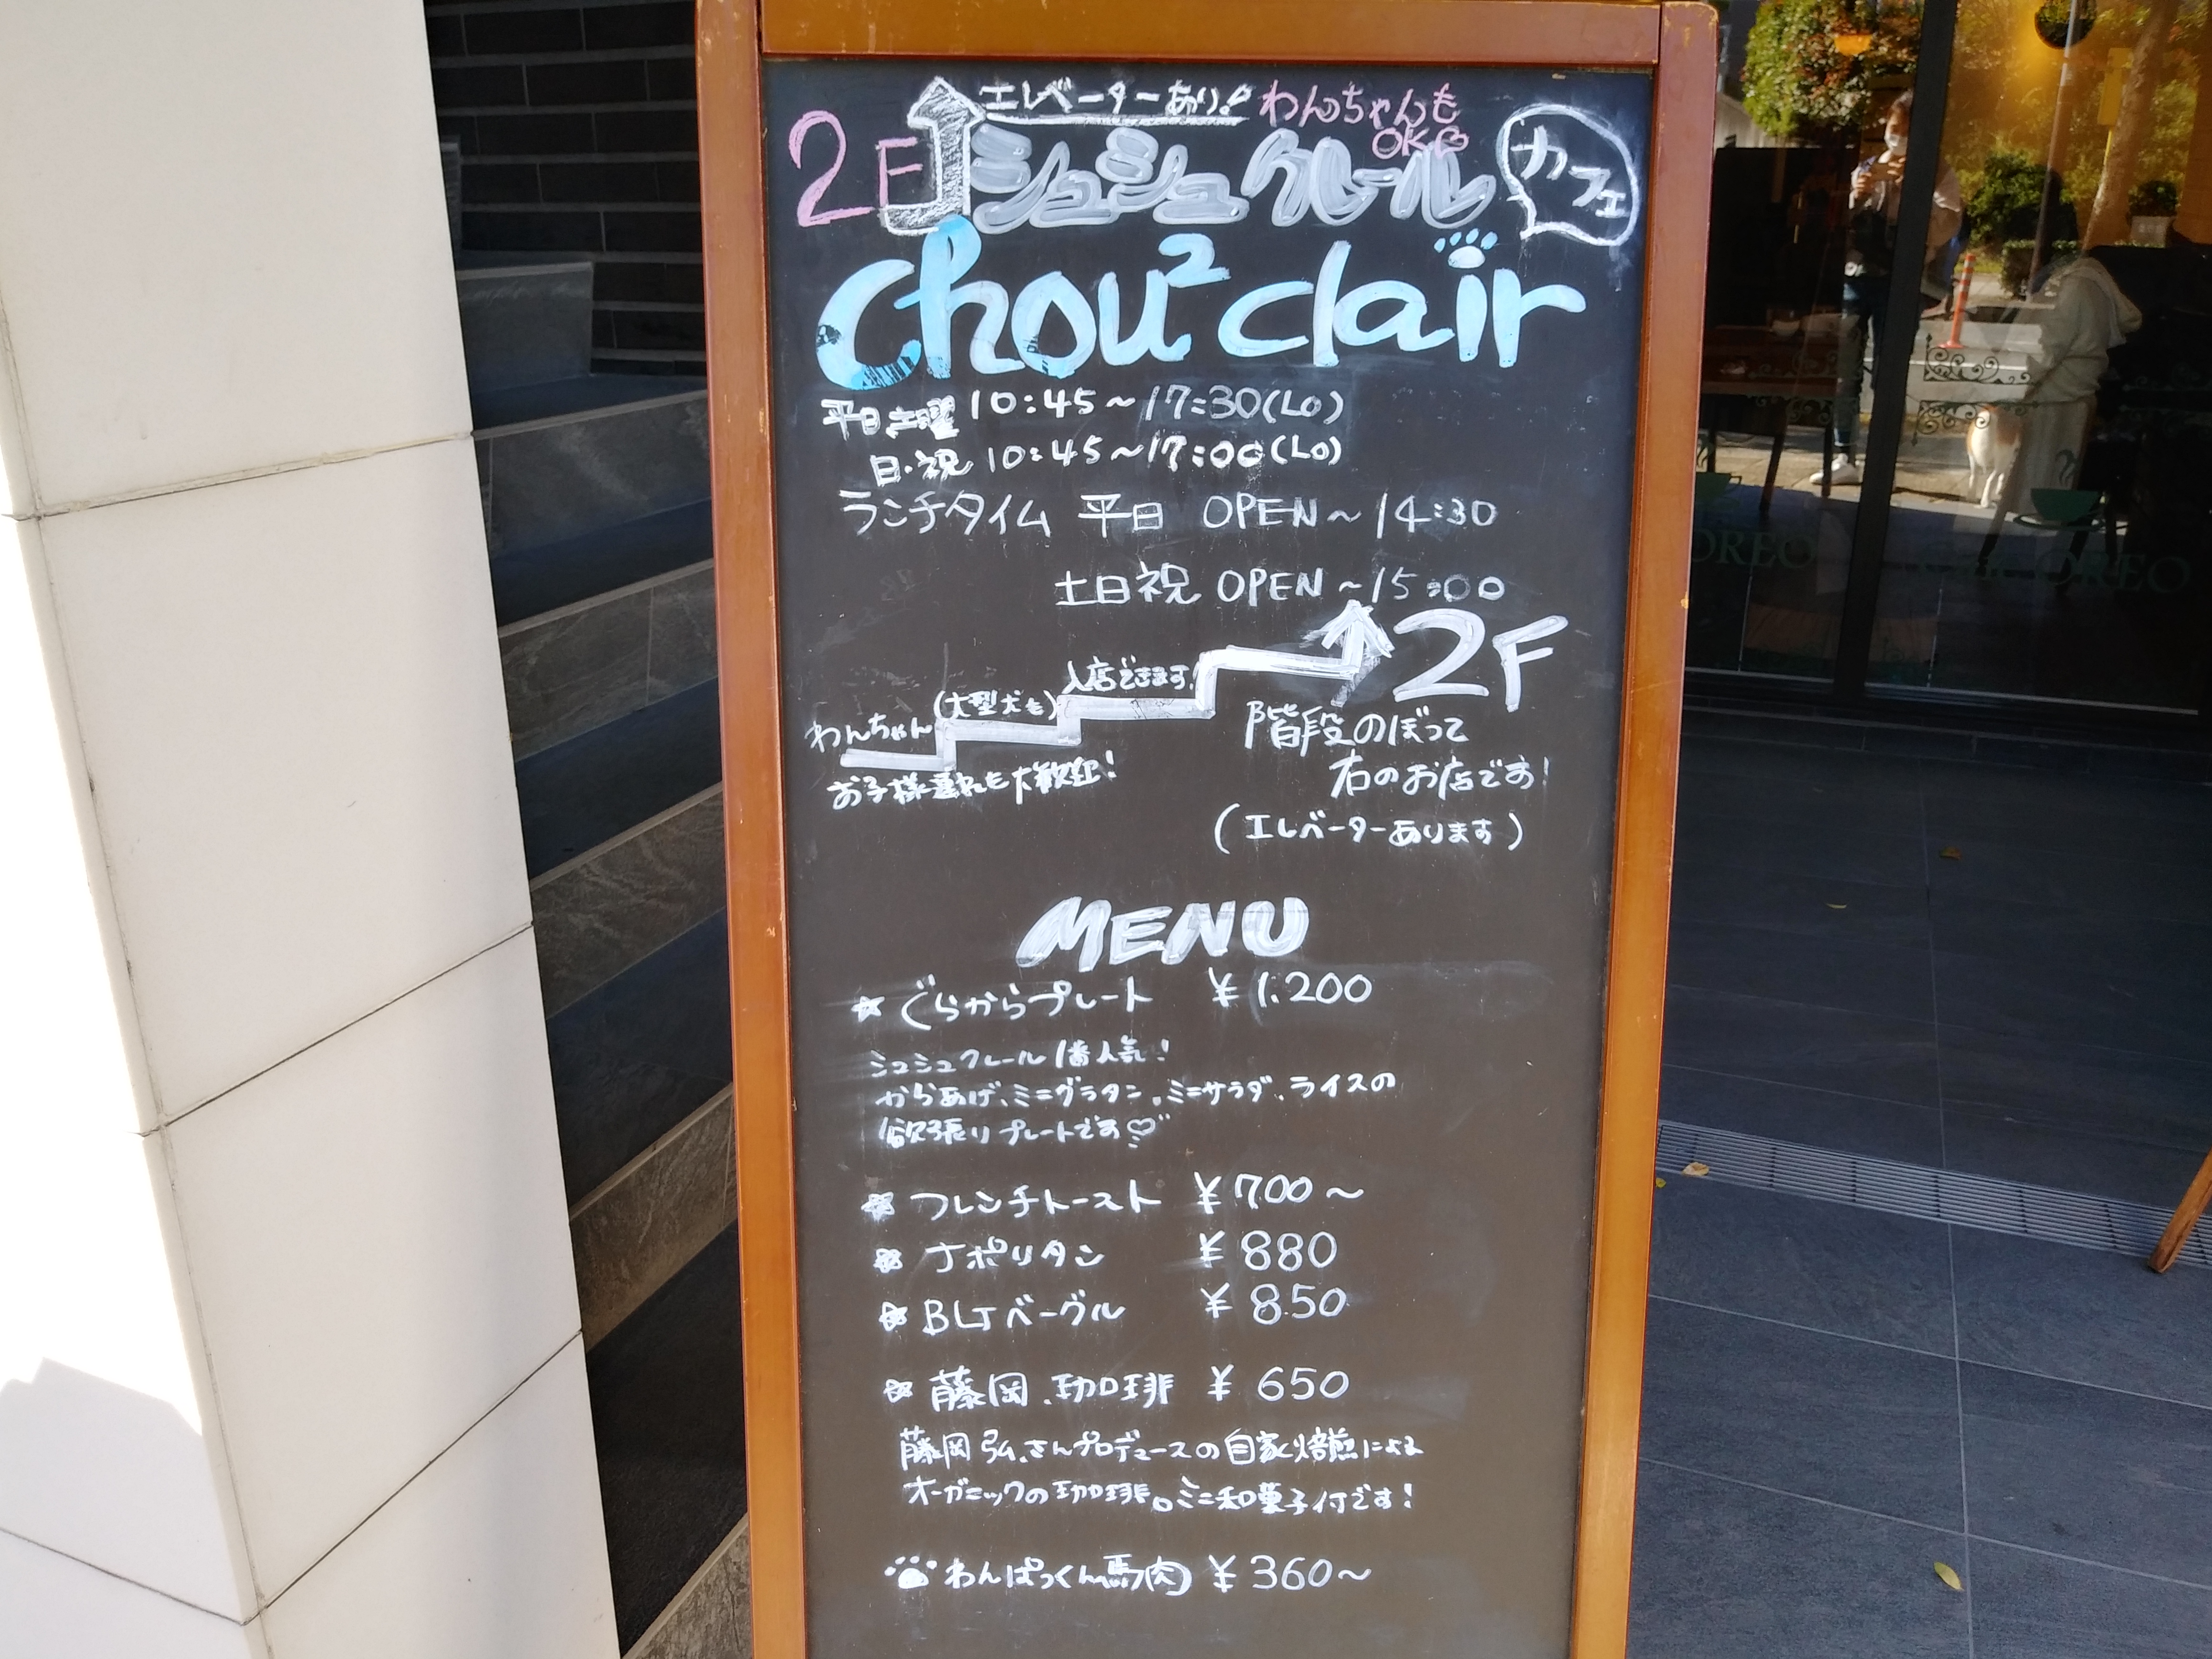 エレベーターあり! わんちゃんも
OK
2F シュシュクレール カフェ
chou² clair
平日 土曜 10:45~17:30(LO)
日・祝 10:45~17:00(LO)
ランチタイム 平日 OPEN~14:30
土日祝 OPEN~15:00
2F
わんちゃん(大型犬も)入店できます!
お子様連れも大歓迎!
階段のぼって
右のお店です!
(エレベーターあります)
MENU
★ぐらからプレート ¥1.200
シュシュクレール1番人気!
からあげ、ミニグラタン、ミニサラダ、ライスの
欲張りプレートです♡
★フレンチトースト ¥700~
★ナポリタン ¥880
★BLTベーグル ¥850
★藤岡、珈琲 ¥650
藤岡弘、さんプロデュースの自家焙煎による
オーガニックの珈琲。ミニ和菓子付です!
わんぱっくん馬肉 ¥360~
OREO
OREO